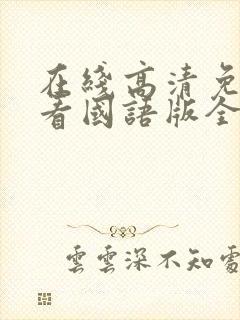 在綫高清免
看國語版全
雲雲深不知處